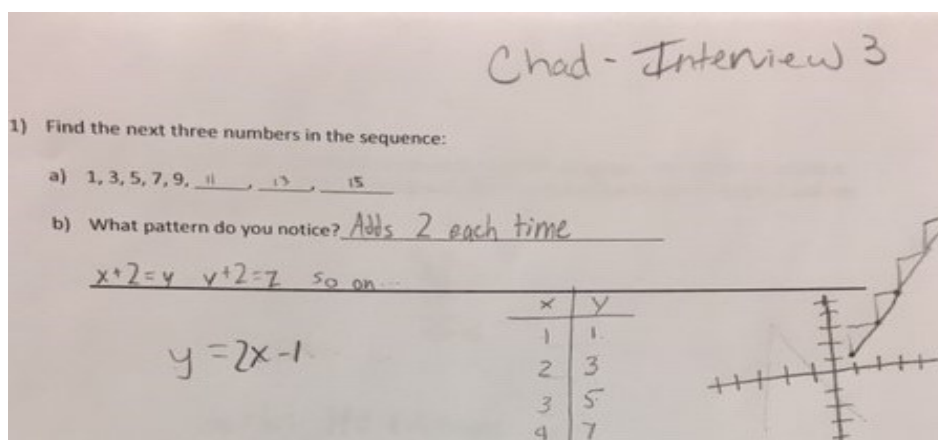 Chad - Interview 3
1) Find the next three numbers in the sequence:
a) 1, 3, 5, 7, 9, 11, 13, 15
b) What pattern do you notice? Adds 2 each time
x+2=y y+2=z so on...
x y
1 1
y=2x-1
2 3
3 5
4 7